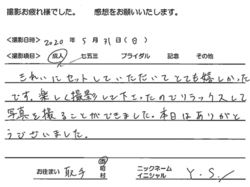 撮影お疲れ様でした。　感想をお願いいたします。
<撮影日時>　2020　年　5　月　31　日（日）
<撮影項目>　成人　七五三　ブライダル　記念　その他
きれいにセットしていただいてとても嬉しかった
です。楽しく撮影して下さったのでリラックスして
写真を撮ることができました。本日はありがと
うございました。
お住まい　取手　市　町　村　ニックネーム　イニシャル　Y.S.